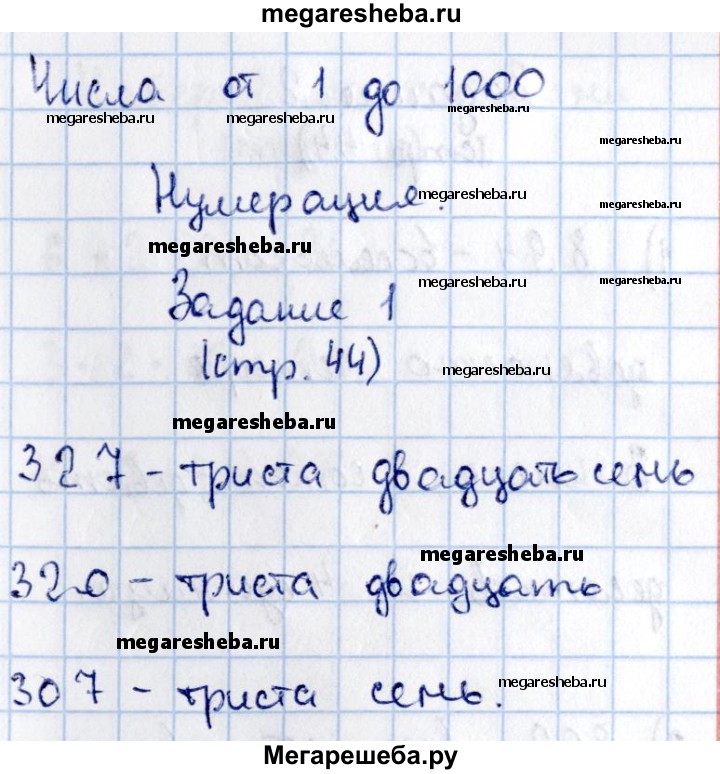 megaresheba.ru
Числа от 1 до 1000
megaresheba.ru megaresheba.ru megaresheba.ru
megaresheba.ru
Нумерация. megaresheba.ru
megaresheba.ru
megaresheba.ru
Задание 1 megaresheba.ru megaresheba.ru
(стр. 44) megaresheba.ru
megaresheba.ru
327 - триста двадцать семь
megaresheba.ru
320 - триста двадцать
megaresheba.ru
307 - триста семь. megaresheba.ru
Мегарешеба.ру